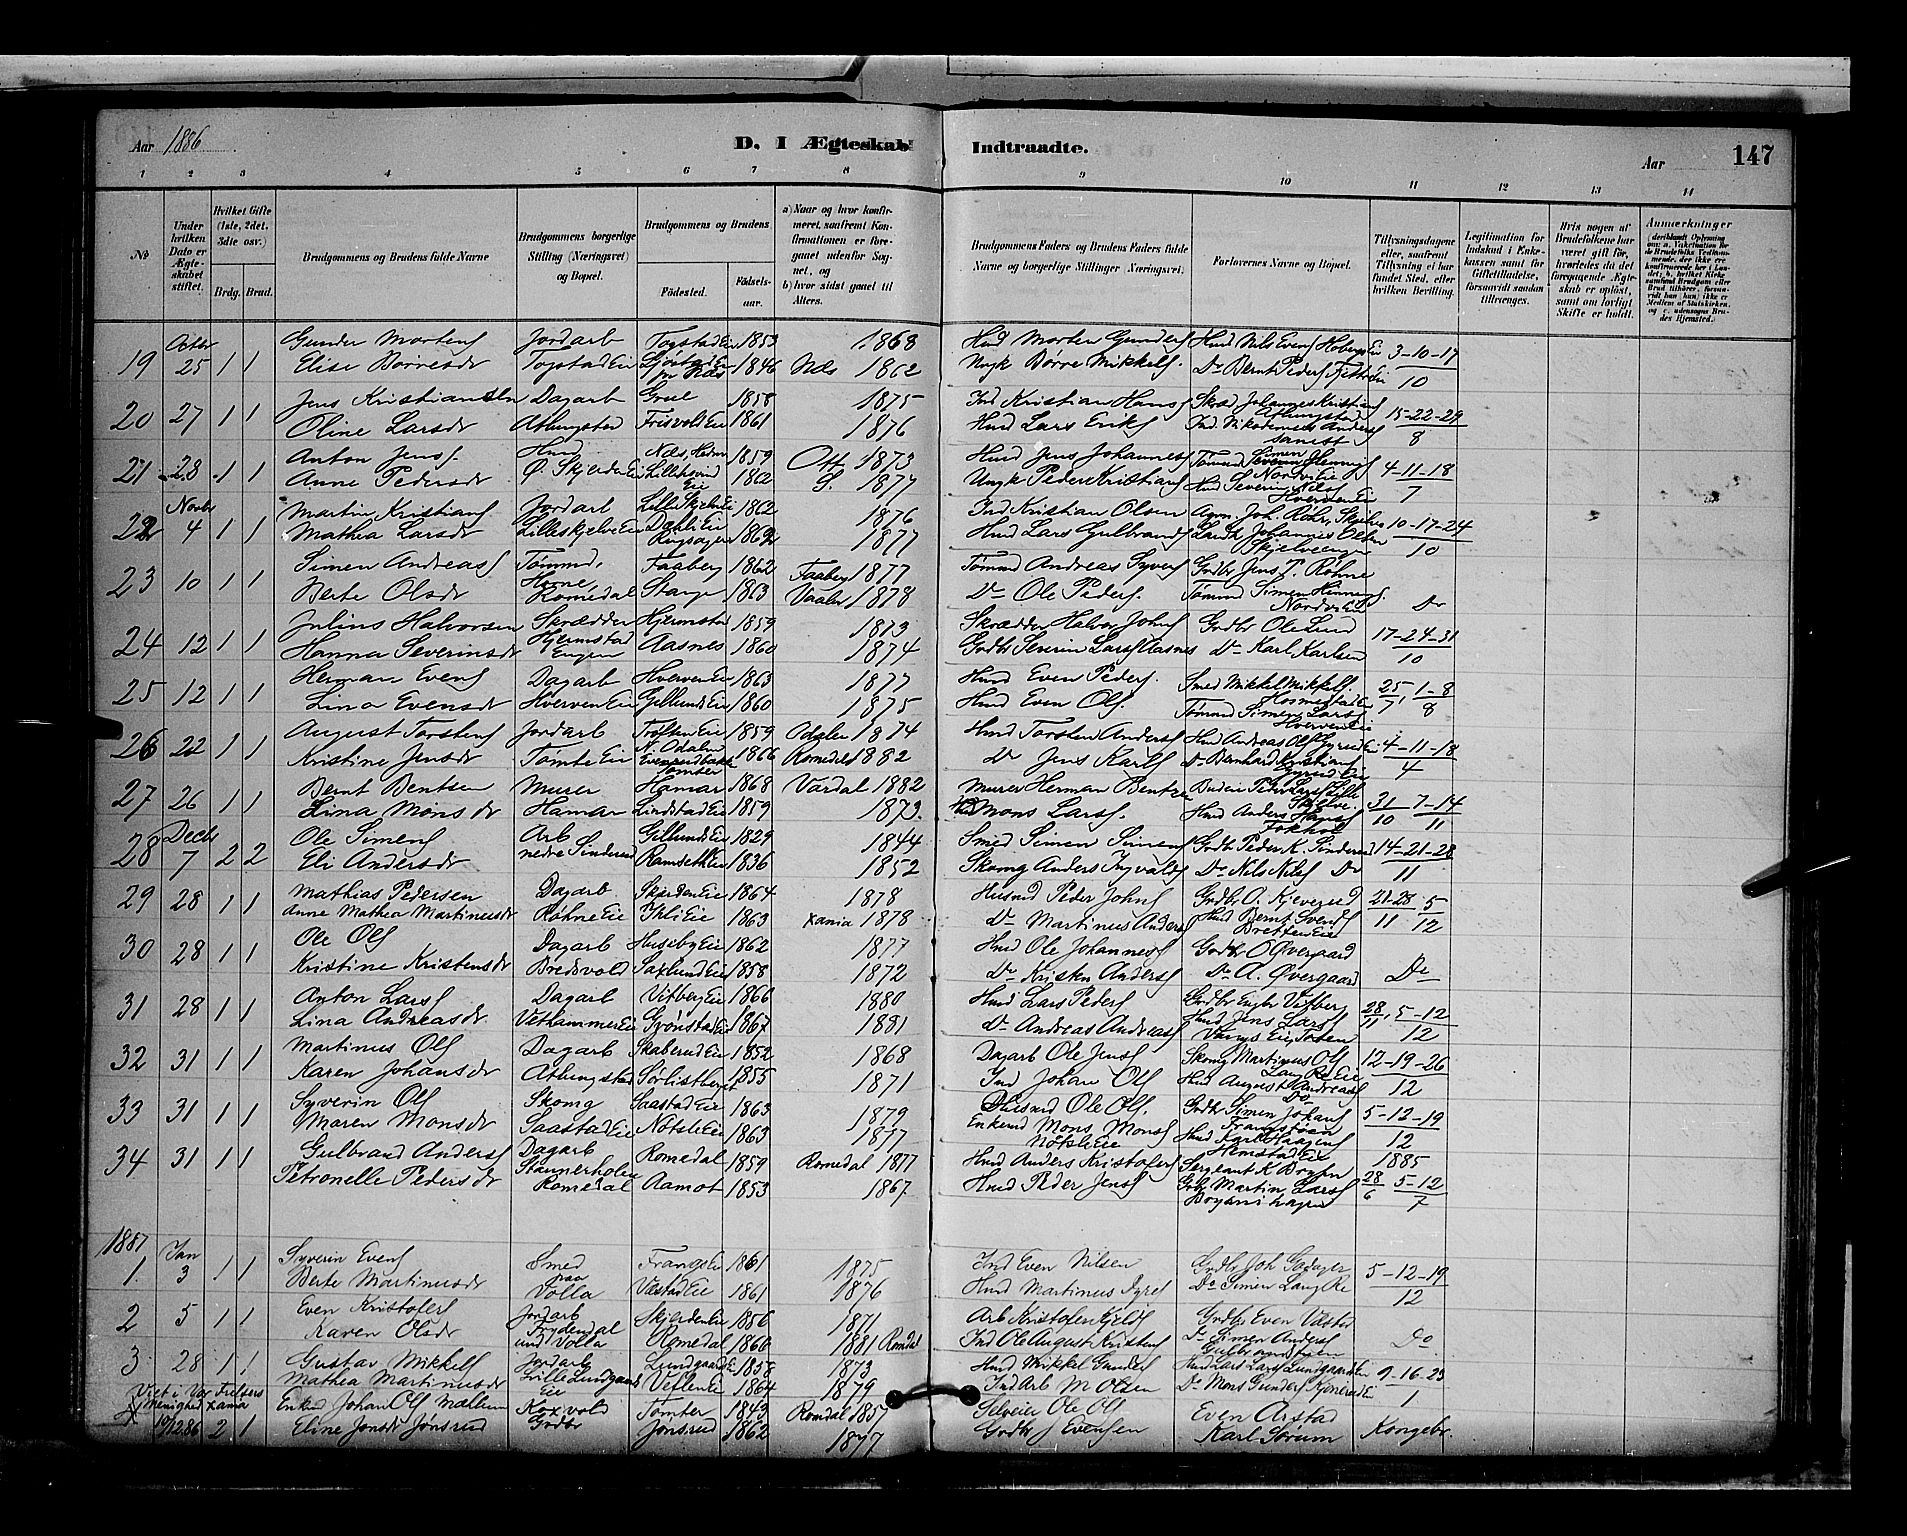 Aar 1886
D. I Ægteskab
Indtraadte.
Aar
147
1 2 3 4 5 6 7 8 9 10 11 12 13 14
No
Under hvilken Dato er Ægteskabet stiftet.
Hvilket Gifte (1ste, 2det, 3dte osv.)
Brdg. Brud.
Brudgommens og Brudens fulde Navne
Brudgommens borgerlige Stilling (Næringsvei) og Bopæl.
Brudgommens og Brudens
Fødested.
Fødselsaar.
a) Naar og hvor konfirmeret, saafremt Konfirmationen er foregaaet udenfor Sognet, og
b) hvor sidst gaaet til Alters.
Brudgommens Faders og Brudens Faders fulde Navne og borgerlige Stillinger Næringsvei.
Forlovernes Navne og Bopæl.
Tillysningsdagene eller, saafremt Tillysning ei har fundet Sted, efter hvilken Bevilling.
Legitimation for Indskud i Enkekassen samt for Giftetilladelse, forsaavidt saadan tiltrænges.
Hvis nogen af Brudefolkene har været gift før, hvorledes da det foregaaende Ægteskab er opløst, samt om lovligt Skifte er holdt.
Anmærkninger
19 Octbr 25 1 1 Gunder Mortens Jordarb Togstad Eie 1853 1868 Hmd Morten Gunders Hmd Nils Evens Hoberg Eie 3-10-17
Elise Børresdr Togstad Eie 1846 Næs 1862 Børre Mikkels. Do Bernt Peders 10
20 27 1 1 Jens Kristiansen Dagarb Grue 1858 1875 Ind Kristian Hans Skræd Johannes Kristians 15-22-29
Oline Larsdr Athungstad Frisvold Eie 1861 1876 Hmd Lars Eriks Ind Nikodemus Anders samest 8
21 28 1 1 Anton Jens. Hmd Næs, Hedm 1859 1873 Hmd Jens Johannes Tømmd Simen Hennings 4-11-18
Anne Pedersdr Ø. Skjerden Eie 1862 1877 Peder Kristians Hmd Severin Nils Hverven Eie 7
22 Novbr 4 1 1 Martin Kristians Jordarb Lille Skjelve Eie 1862 1876 Ind Kristian Olsen Agm. Joh. Röhr, Skjelve 10-17-24
Mathea Larsdr Lilleskjelve Eie Dæhli Eie Ringsager 1862 1877 Hmd Lars Gulbrands Johannes Olsen Skjelveengen 10
23 10 1 1 Simen Andreas Tømmd. Faaberg 1862 Faaberg 1877 Tømmd Andreas Syvers Grdbr Jens P. Røhne
Berte Olsdr Horne Romedal Stange 1863 Vaaler 1878 Do Ole Peders. Tømmd Simen Hennings. Nordvi Eie Do
24 12 1 1 Julius Halvorsen Skrædder Hjermstad 1859 1873 Skrædder Halvor Johns Grdbr Ole Lund 17-24-31
Hanna Severinsdr Hjermstad Engen Aasnes 1860 1874 Grdbr Severin Lars Aasnes Do Karl Karlsen 10
25 12 1 1 Herman Evens Dagarb Hverven Eie 1863 1877 Hmd Even Peders. Smed Mikkel Mikkels. 25/7, 1-8
Lina Evensdr Hverven Eie Gillund Eie 1860 1875 Hmd Even Ols. Tømmd Simen Lars Hverven Eie 8
26 22 1 1 August Torstens Jordarb Trøften Eie N. Odalen 1859 Odalen 1874 Hmd Torsten Anders Hmd Andreas Ols Gyrud Eie 4-11-18
Kristine Jensdr Tomte Eie Tomter 1866 Romedal 1882 Do Jens Karls Do Bernhard Kristians Gyrud Eie 4
27 26 1 1 Bernt Bentsen Murer Hamar 1868 Vardal 1882 Murer Herman Bentsen Lille Skjelve. 31/10 7-14
Lina Monsdr Hamar Lindstad Eie 1859 1873. Mons Lars. Hmd Anders Hans Fokhol 11
28 Decbr 7 2 2 Ole Simens Arb Gillund Eie 1829 1844 Smed Simen Simens Grdbr Peder K. Sinderud 14-21-28
Eli Andersdr nedre Sinderud Ramseth Eie 1836 1852 Skomg Anders Ingvalds Do Nils Nils Do 11
29 28 1 1 Mathias Pedersen Dagarb Skjerden Eie 1864 1878 Husmd Peder Johns Grdbr A. Kjeverud 21-28/11 5/12
Anne Mathea Martinusdr Røhne Eie Ihli Eie 1863 Xania 1878 Do Martinus Anders Hmd Bernt Svends Bretten Eie
30 28 1 1 Ole Ols Dagarb Huseby Eie 1862 1877 Hmd Ole Johannes Grdbr O Øvergaard
Kristine Kristensdr Bredvold Saxlund Eie 1858 1872 Do Kristen Anders Do A. Øvergaard Do
31 28 1 1 Anton Lars Dagarb Vitberg Eie 1866 1880 Hmd Lars Peders Grdbr Engbr Vitberg 28/11, 5-12
Lina Andreasdr. Vethammer Eie Grønstad Eie 1867 1881 Do Andreas Andreas Hmd Jens Lars Vangs Eie Toten 12
32 31 1 1 Martinus Ols Dagarb Skaberud Eie 1852 1868 Dagarb Ole Jens Skomg Martinus Ols Lang Re Eie 12-19-26
Karen Johansdr Athungstad Sørlistberget 1855 1871 Ind Johan Ols Hmd August Andreas Do 12
33 31 1 1 Syverin Ols Skomg Saastad Eie 1863 1879 Husmd Ole Ols. Grdbr Simen Johans Frangstøen 5-12-19
Maren Monsdr Saastad Eie Nøtsle Eie 1863 1877 Enkemd Mons Mons Nøtsle Eie Hmd Karl Haagens Hemstad Eie 12
34 31 1 1 Gulbrand Anders Dagarb Romedal 1859 Romedal 1877 Hmd Anders Kristofers Sergeant K Bryhn 1885
Petronelle Pedersdr Stannerholen Romedal Aamot 1853 1867. Hmd Peder Jens Grdbr Martin Lars Bryhnshagen 28/6 5-12/7
1887
1 Jan 3 1 1 Syverin Evens Smed Frang Eie 1861 1875 Ind Even Nilsen Grdbr Joh Gadager 5-12-19
Berte Martinusdr paa Volla Væstad Eie 1861 1876 Hmd Martinus Do Simen Lang Re 12
2 5 1 1 Even Kristofers Jordarb Skjerden Eie 1856 1871 Arb Kristofer Kjelds Grdbr Even Væstad
Karen Olsdr Frydendal und Volla Romedal 1866 1881 Romdal Ind Ole August Kristens Do Simen Anders Gulbrandstien Do
3 28 1 1 Gustav Mikkels Jordarb Lundgaard Eie 1858 1873 Hmd Mikkel Gunders Hmd Lars Lars Lundgaard Eie 9-16-23
Mathea Martinusdr Lille Lundgaards Eie Veflen Eie 1864 1879 Ind Arb M Olsen Do Mons Gunders Kjonerud Eie 1
Viet i Vor Frelsers Menighed Xania
19/12 86 2 1 Enkmd Johan Ols Mælum Koxvold Tomter 1843 Romdal 1857 Selveier Ole Ols Even Arstad
Eline Jensdr Jønsrud Grdbr Jønsrud 1862 1877 Grdbr J Evensen Karl Sørum Kongebr.